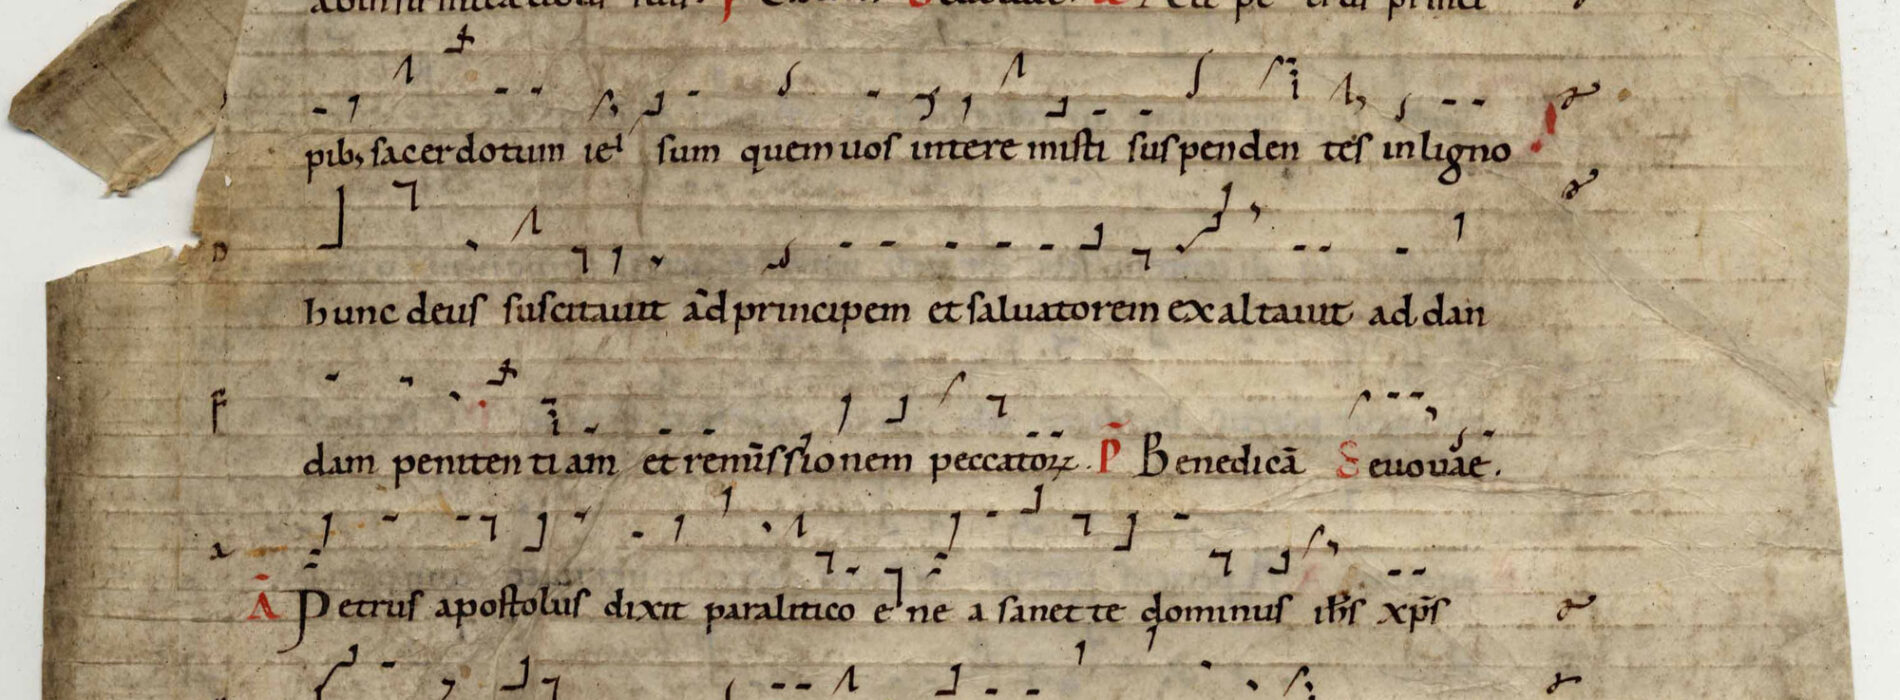 pibꝫ sacerdotum ieł sum quem uos intere misti suspenden tes in ligno
hunc deus suscitauit ad principem et saluatorem exaltauit ad dan
dam peniten ti am et remissionem peccatoꝝ. P̄ Benedicā Seuouae.
Ā Petrus apostolus dixit paralitico e ne a sanet te dominus ih̄s xp̄s